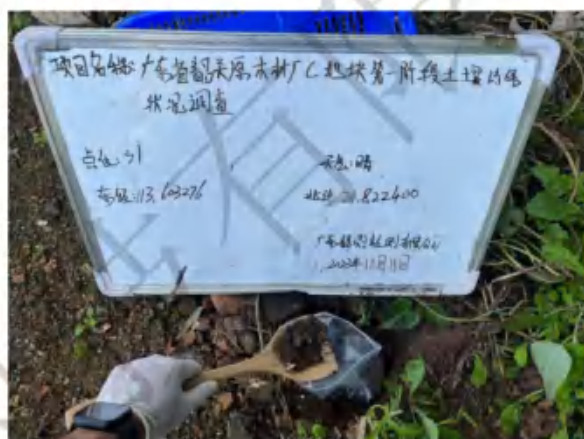 项目名称:广东省韶关原木材厂C地块第一阶段土壤污染
状况调查
点位:S1
天气:晴
东经:113.603276
北纬:24.822400
2023年11月11日